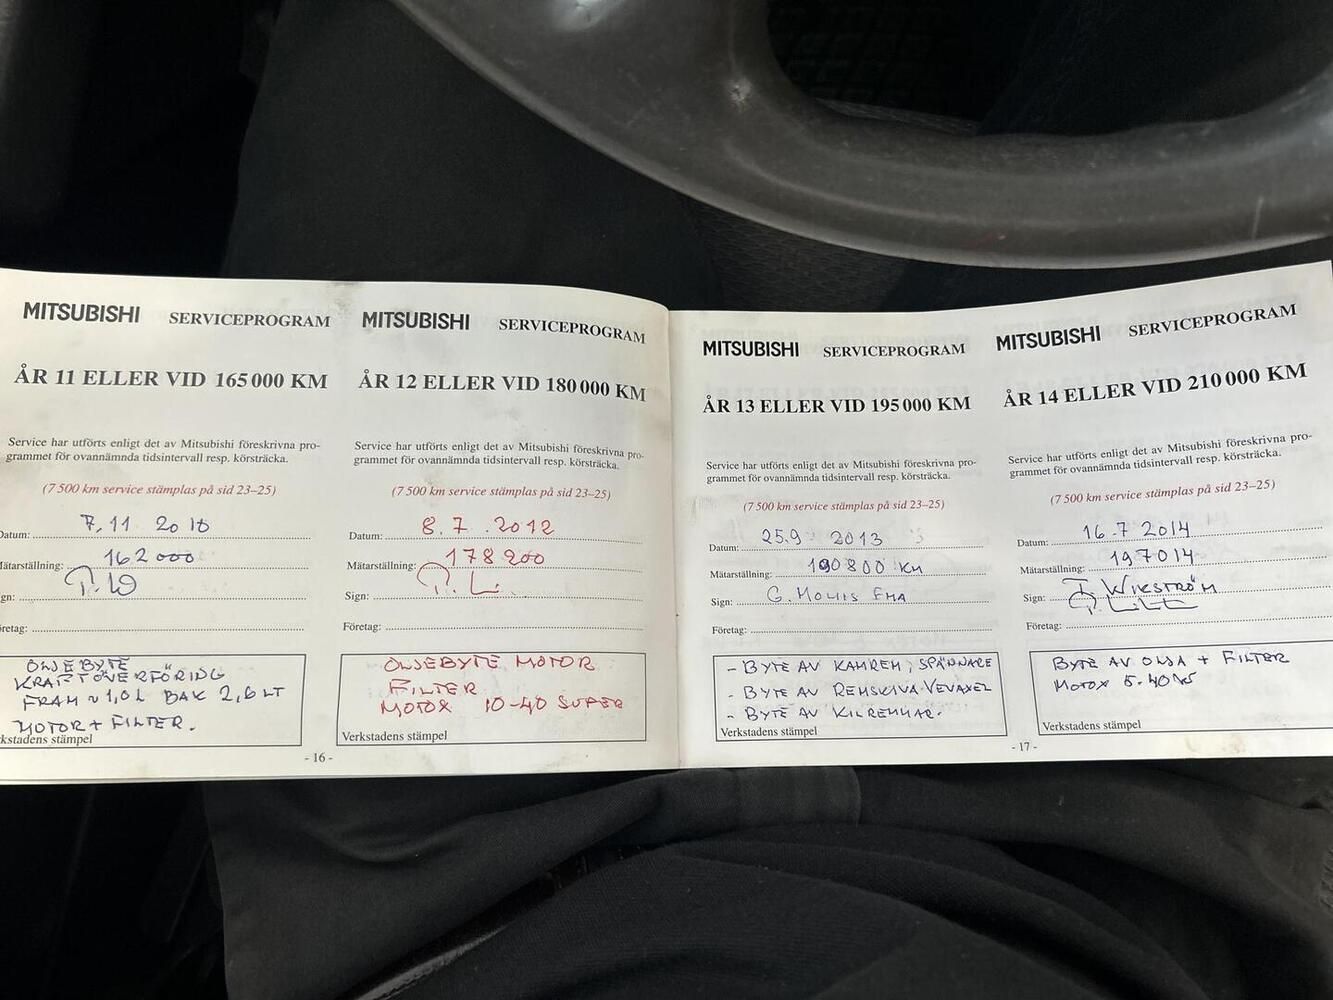 MITSUBISHI SERVICEPROGRAM
ÅR 11 ELLER VID 165 000 KM
Service har utförts enligt det av Mitsubishi föreskrivna pro-
grammet för ovannämnda tidsintervall resp. körsträcka.
(7 500 km service stämplas på sid 23–25)
Datum: 7.11 2010
Mätarställning: 162 000
gn:
retag:
OLJEBYTE
KRAFTÖVERFÖRING
FRAM ~1,0L BAK 2,6 LT
MOTOR + FILTER.
kstadens stämpel
MITSUBISHI SERVICEPROGRAM
ÅR 12 ELLER VID 180 000 KM
Service har utförts enligt det av Mitsubishi föreskrivna pro-
grammet för ovannämnda tidsintervall resp. körsträcka.
(7 500 km service stämplas på sid 23–25)
Datum: 8.7.2012
Mätarställning: 178 200
Sign:
Företag:
OLJEBYTE MOTOR
FILTER
MOTOX 10-40 SUPER
Verkstadens stämpel
- 16 -
MITSUBISHI SERVICEPROGRAM
ÅR 13 ELLER VID 195 000 KM
Service har utförts enligt det av Mitsubishi föreskrivna pro-
grammet för ovannämnda tidsintervall resp. körsträcka.
(7 500 km service stämplas på sid 23–25)
Datum: 25.9 2013
Mätarställning: 190 800 KM
Sign: G.
Företag:
- BYTE AV KAMREM, SPÄNNARE
- BYTE AV REMSKIVA VEVAXEL
- BYTE AV KILREMMAR.
Verkstadens stämpel
MITSUBISHI SERVICEPROGRAM
ÅR 14 ELLER VID 210 000 KM
Service har utförts enligt det av Mitsubishi föreskrivna pro-
grammet för ovannämnda tidsintervall resp. körsträcka.
(7 500 km service stämplas på sid 23–25)
Datum: 16.7 2014
Mätarställning: 197014
Sign: WIKSTRÖM
Företag:
BYTE AV OLJA + FILTER
MOTOX 5-40
Verkstadens stämpel
- 17 -